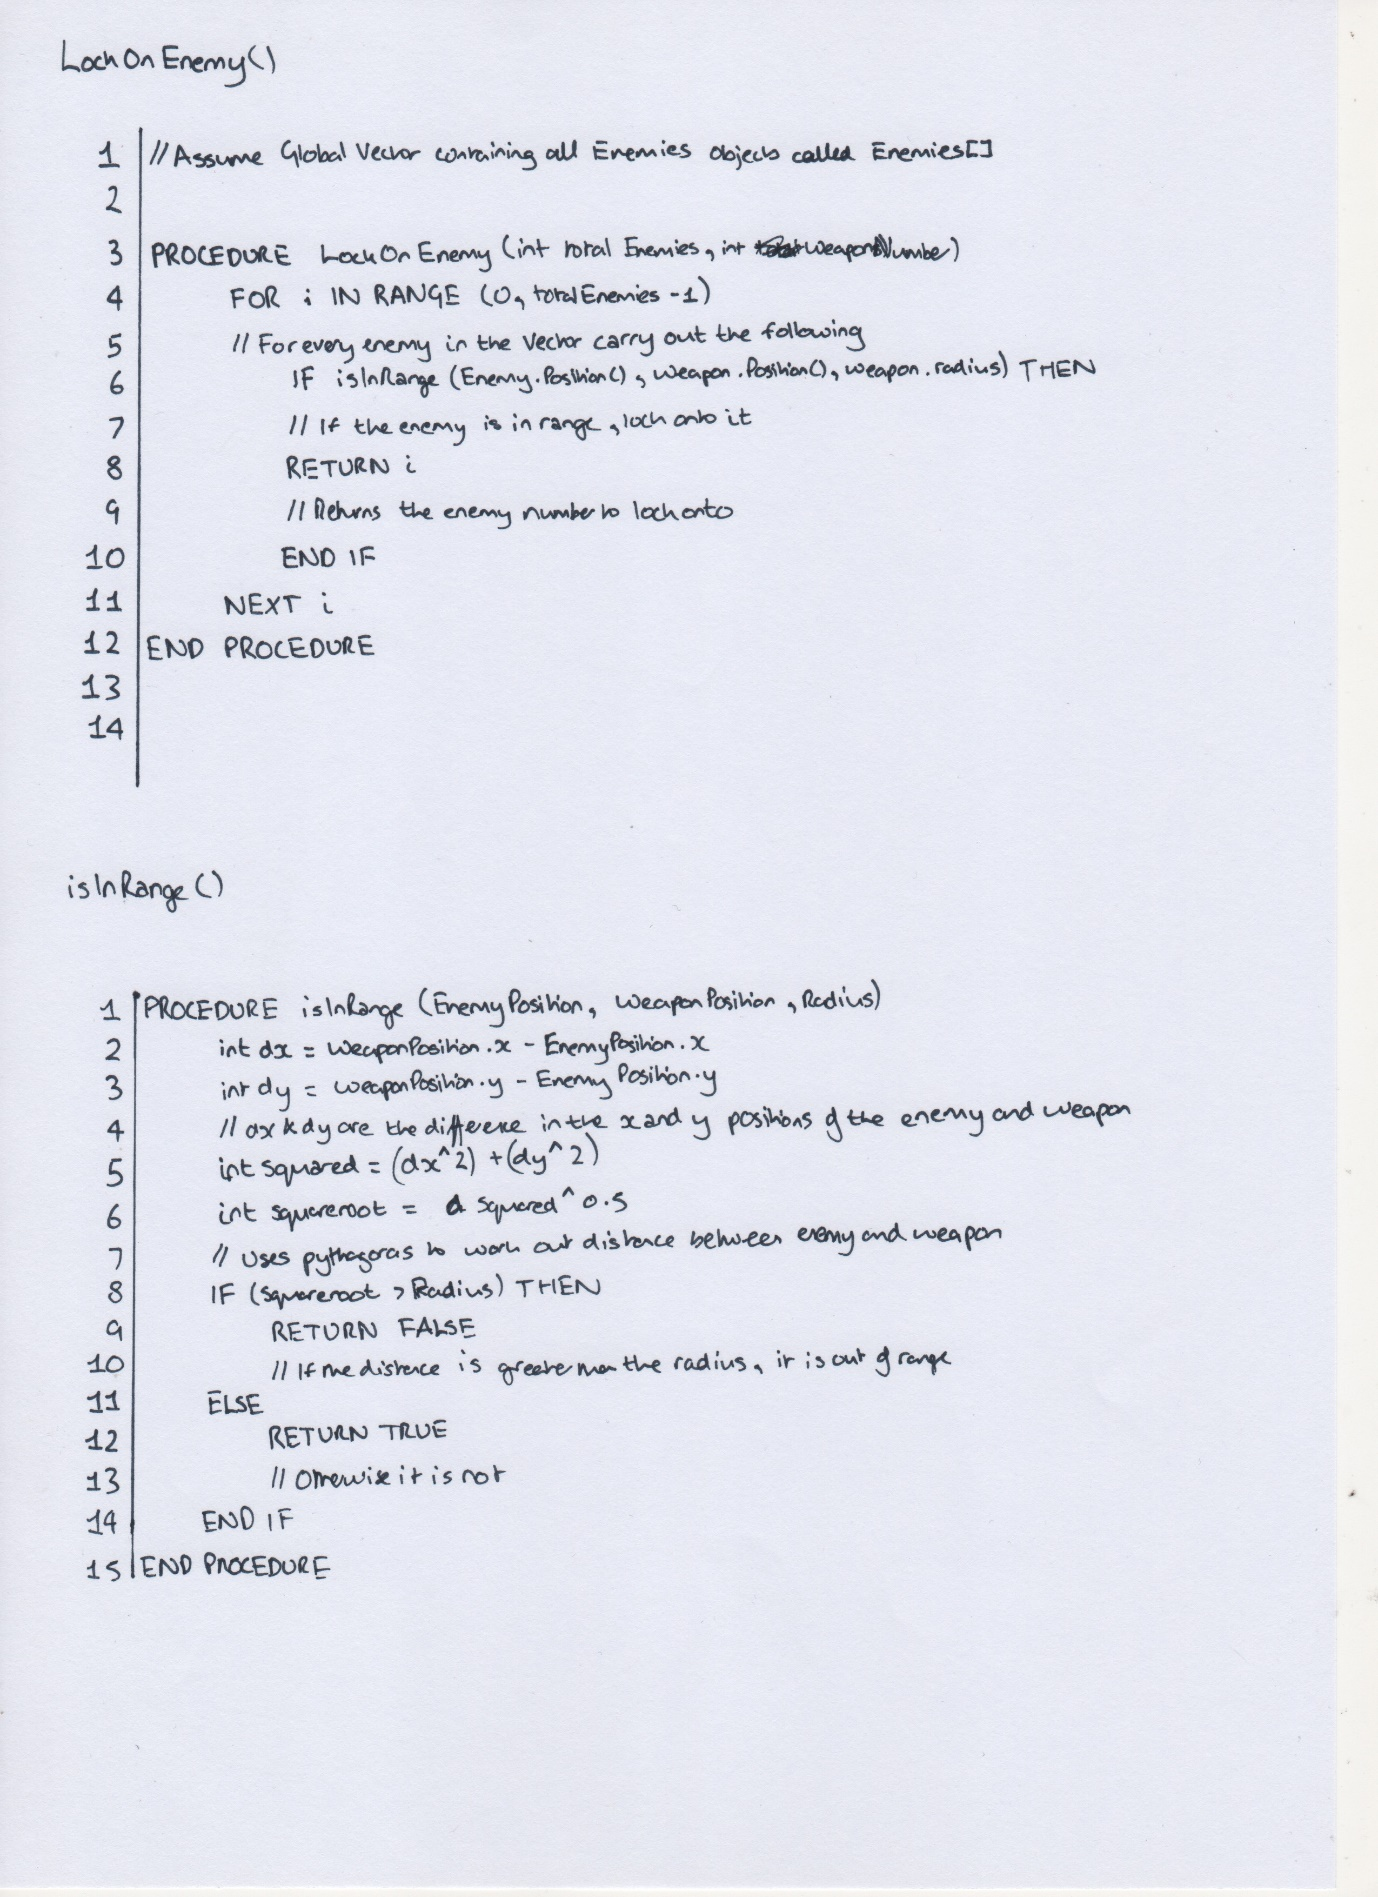 LockOnEnemy()
1 //Assume Global Vector containing all Enemies objects called Enemies[]
2
3 PROCEDURE LockOnEnemy (int totalEnemies, int weaponNumber)
4 FOR i IN RANGE (0, totalEnemies -1)
5 // For every enemy in the vector carry out the following
6 IF isInRange (Enemy.Position(), weapon.Position(), weapon.radius) THEN
7 // If the enemy is in range, lock onto it
8 RETURN i
9 // Returns the enemy number to lock onto
10 END IF
11 NEXT i
12 END PROCEDURE
13
14
isInRange()
1 PROCEDURE isInRange (EnemyPosition, WeaponPosition, Radius)
2 int dx = WeaponPosition.x - EnemyPosition.x
3 int dy = weaponPosition.y - EnemyPosition.y
4 // dx & dy are the difference in the x and y positions of the enemy and weapon
5 int squared = (dx^2) + (dy^2)
6 int squareroot = squared^0.5
7 // Uses pythagoras to work out distance between enemy and weapon
8 IF (squareroot > Radius) THEN
9 RETURN FALSE
10 // If the distance is greater than the radius, it is out of range
11 ELSE
12 RETURN TRUE
13 // Otherwise it is not
14 END IF
15 END PROCEDURE